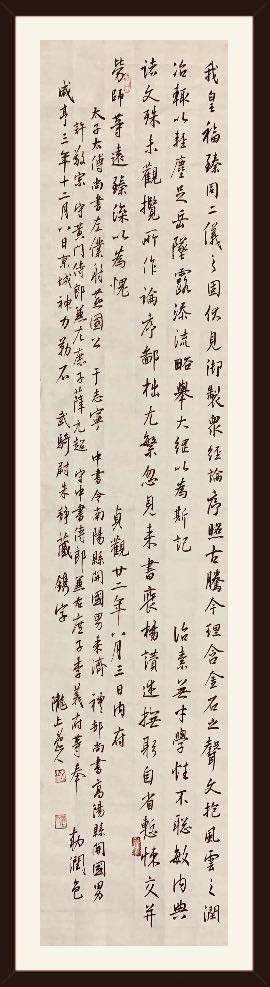 我皇福臻同二儀之固伏見御製眾經論序照古騰今理含金石之聲文抱風雲之潤
治輒以輕塵足岳墜露添流略舉大綱以為斯記 治素無才學性不聰敏內典
諸文殊未觀攬所作論序鄙拙尤繁忽見來書褒揚讚述撫躬自省慙悚交并
勞師等遠臻深以為愧 貞觀廿二年八月三日內府
太子太傅尚書左僕射燕國公于志寧 中書令南陽縣開國男來濟 禮部尚書高陽縣開國男
許敬宗 守黃門侍郎兼左庶子薛元超 守中書侍郎兼右庶子李義府等奉 勅潤色
咸亨三年十二月八日京城神力勒石 武騎尉朱靜藏鐫字
隴上人